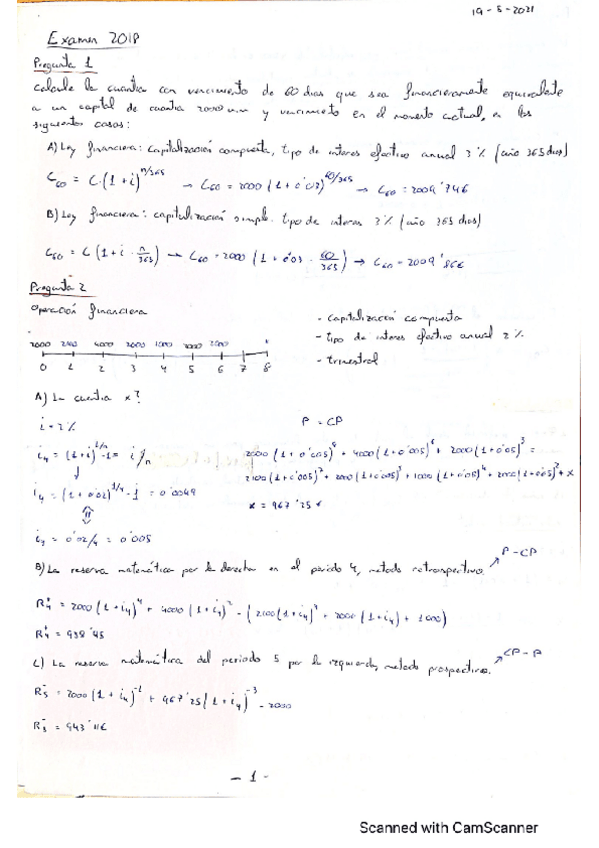 19-5-2021
Examen 2018
Pregunta 1
Calcule la cuantía con vencimiento de 60 días que sea financieramente equivalente
a un capital de cuantía 2000 u.m y vencimiento en el momento actual, en los
siguiente casos:
A) Ley financiera: capitalización compuesta, tipo de interes efectivo anual 3% (año 365 dias)
C60 = C·(1+i)^n/365 → C60 = 2000 (1+0'03)^60/365 → C60 = 2009'746
B) Ley financiera: capitalización simple. tipo de interes 3% (año 365 dias)
C60 = C (1+i·n/365) → C60 = 2000 (1+0'03·60/365) → C60 = 2009'86€
Pregunta 2
Operación financiera
- capitalización compuesta
- tipo de interes efectivo anual 2%
- trimestral
0 1 2 3 4 5 6 7 8
A) La cuantía x?
i = 2%
P = CP
i4 = (1+i)^1/n - 1 = i/n
i4 = (1+0'02)^1/4 - 1 = 0'0049
= 0'02/4 = 0'005
x = 967'25€
B) La reserva matemática por la derecha en el periodo 4, metodo retrospectivo. P-CP
R4+ = 2000(1+i4)^4 + 4000(1+i4)^2 - (2100(1+i4)^3 + 2000(1+i4) + 1000)
R4+ = 938'45
C) La reserva matemática del periodo 5 por la izquierda, metodo prospectivo. CP-P
R5- = 2000(1+i4)^-1 + 967'25(1+i4)^-3 - 2000
R5- = 943'11€
- 1 -
Scanned with CamScanner